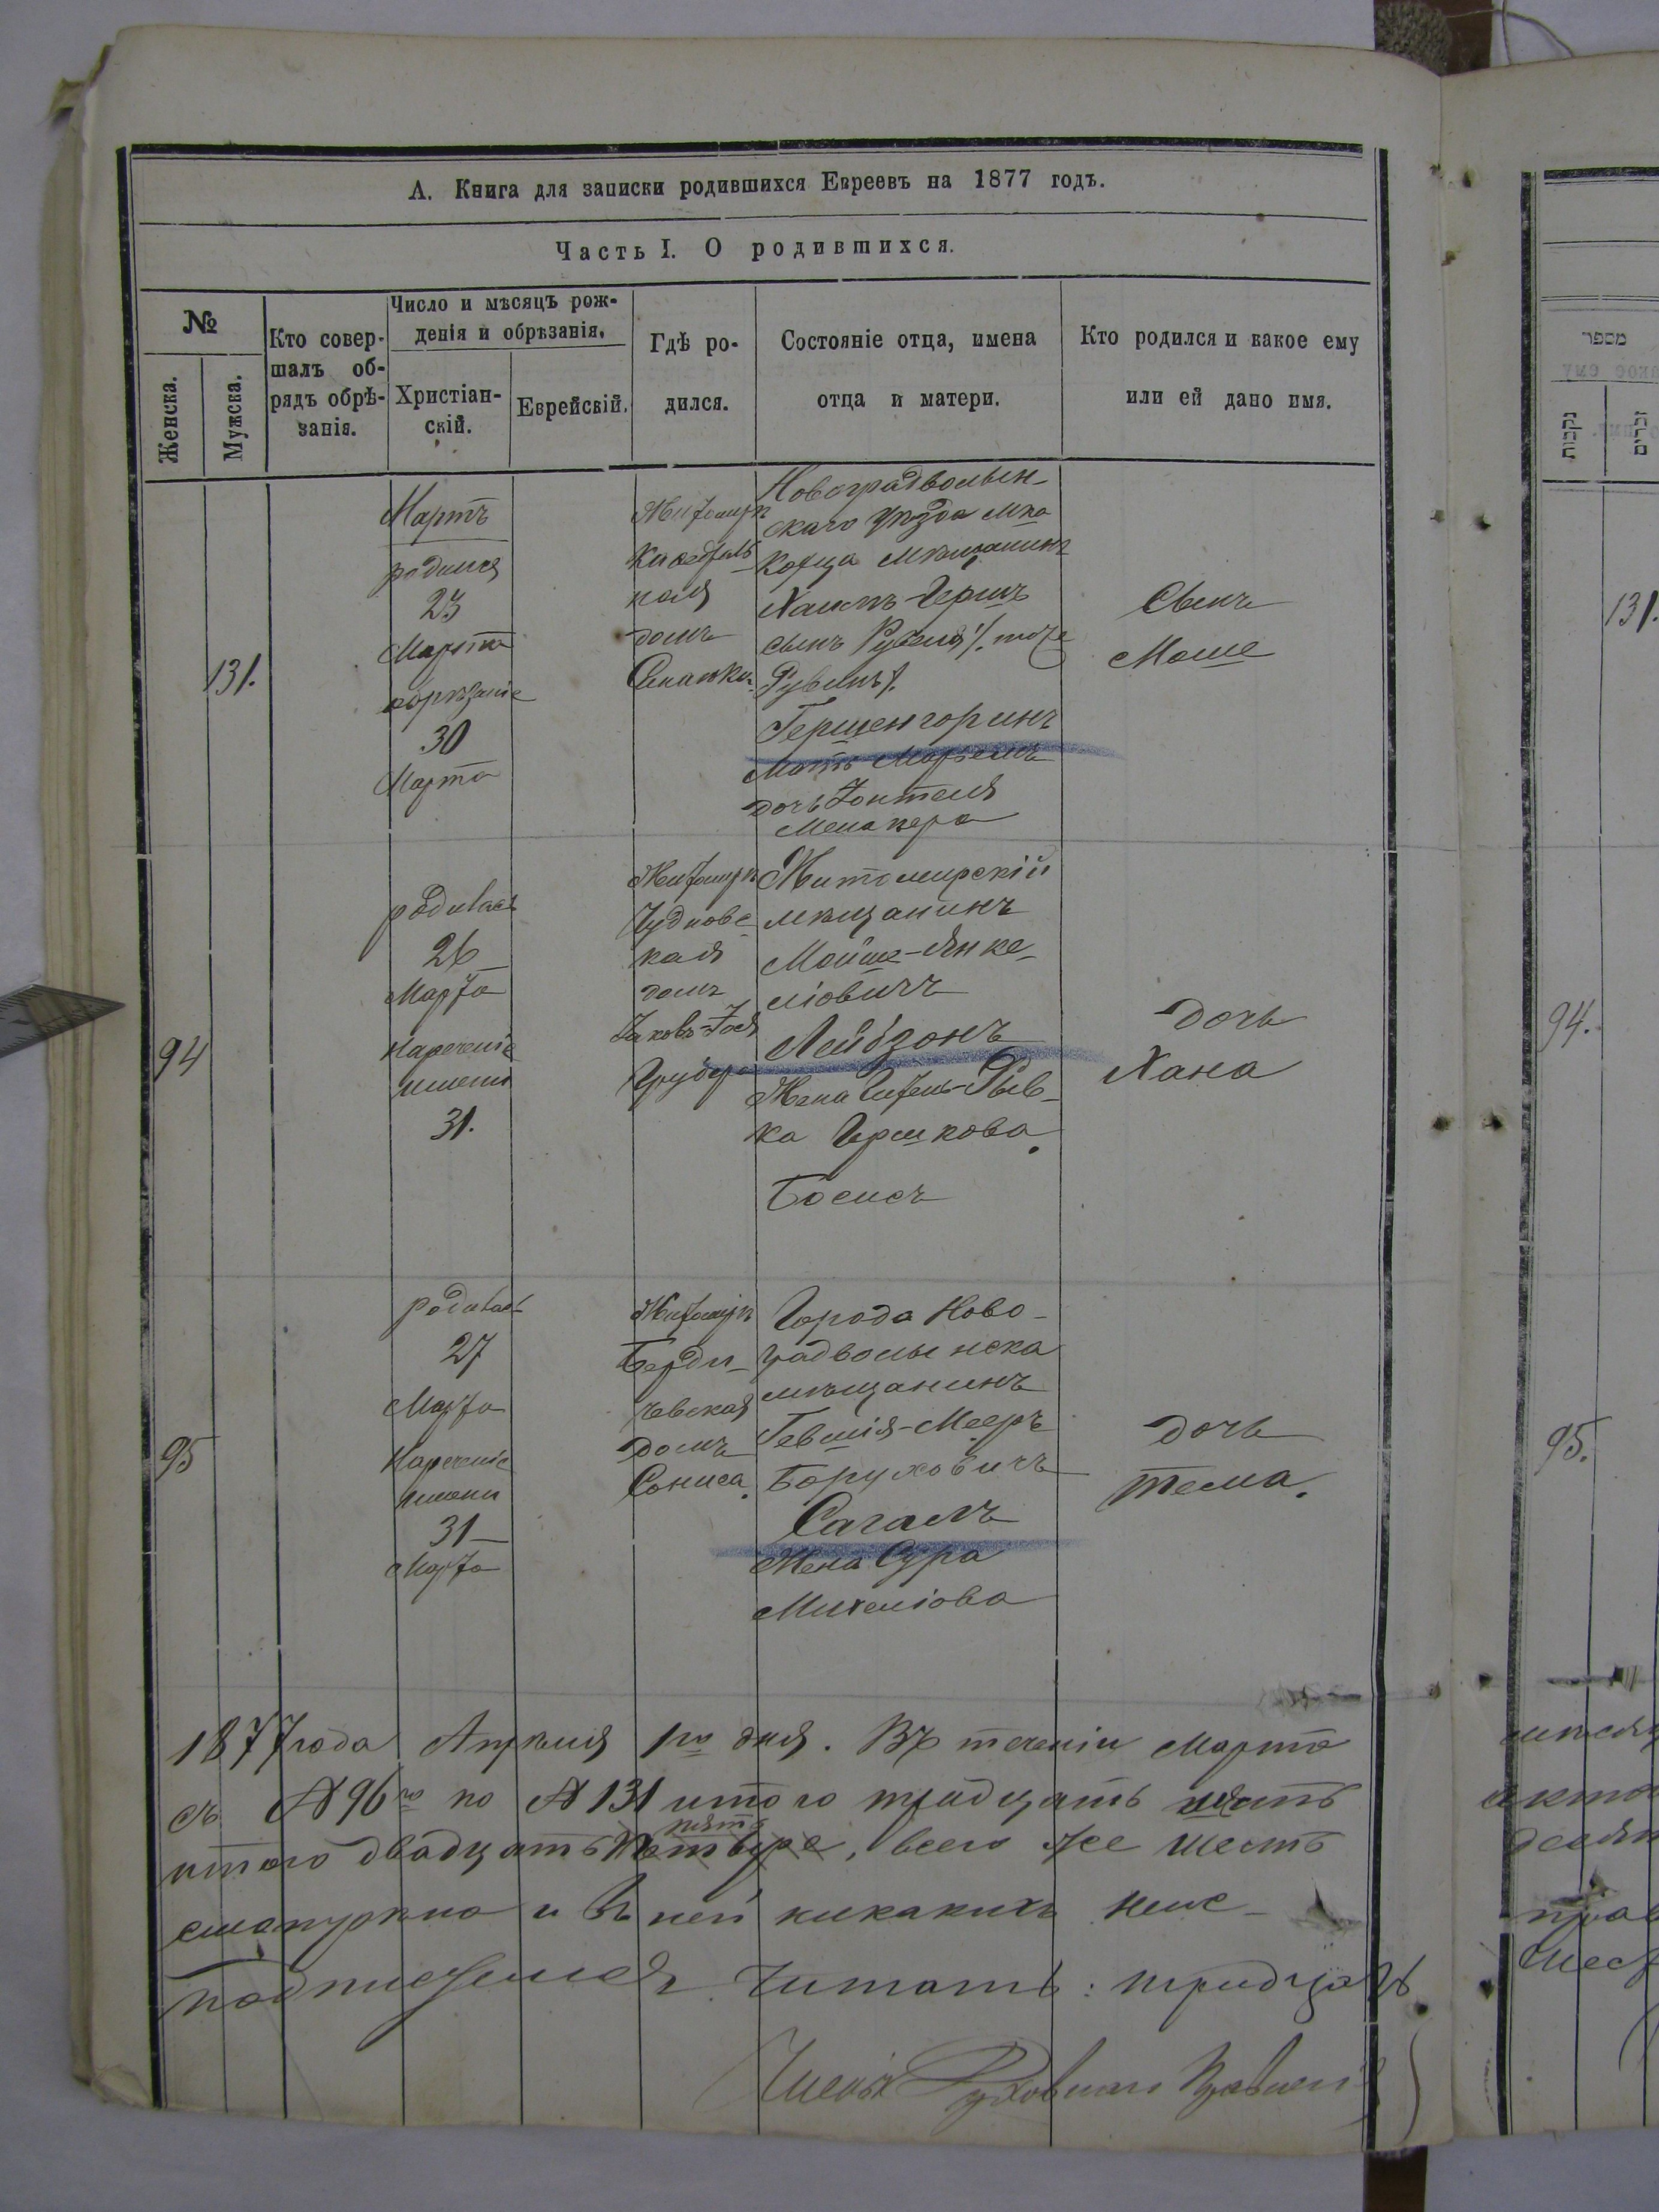 А. Книга для записки родившихся Евреевъ на 1877 годъ.
Часть I. О родившихся.
№
Женска.
Мужска.
Кто совер-
шалъ об-
рядъ обрѣ-
занія.
Число и мѣсяцъ рож-
денія и обрѣзанія.
Христіан-
скій.
Еврейскій.
Гдѣ ро-
дился.
Состояніе отца, имена
отца и матери.
Кто родился и какое ему
или ей дано имя.
131.
Мартъ
родился
23
Марта
обрѣзаніе
30
Марта
Житомиръ
Кафедраль
ная
домъ
Новоградволын-
скаго уѣзда мка
Корца мѣщанинъ
Хаимъ-Гершъ
сынъ Рувеля /. тоже
Рувинъ /.
Гершенгоринъ
Мать Марьемъ
дочь Зонтеля
Менакера
Сынъ
Моше
94
родилась
26
Марта
нареченіе
имени
31.
Житомиръ
Чуднов-
кая
домъ
Грубера
Житомирскій
мѣщанинъ
Мойше-Янке-
ліовичъ
Лейбзонъ
Жена Гитель-Рыв-
ка Гершкова
дочь
Хана
95
родилась
27
Марта
Нареченіе
имени
31
Марта
Житомиръ
Берди-
чевская
домъ
Сониса.
Города Ново-
градволынска
мѣщанинъ
Гевшія-Мееръ
Боруховичъ
Сагалъ
Жена Сура
Михеліова
дочь
Тема.
1877 года Апрѣля 1го дня. Въ теченіи Марта
съ № 96го по № 131 итого тридцать шесть
пять
итого двадцать четыре, всего же шесть
и въ ней никакихъ
Читать: тридцать
Духовнаго Правленія
מספר
נקבות
זכרים
131.
94.
95.